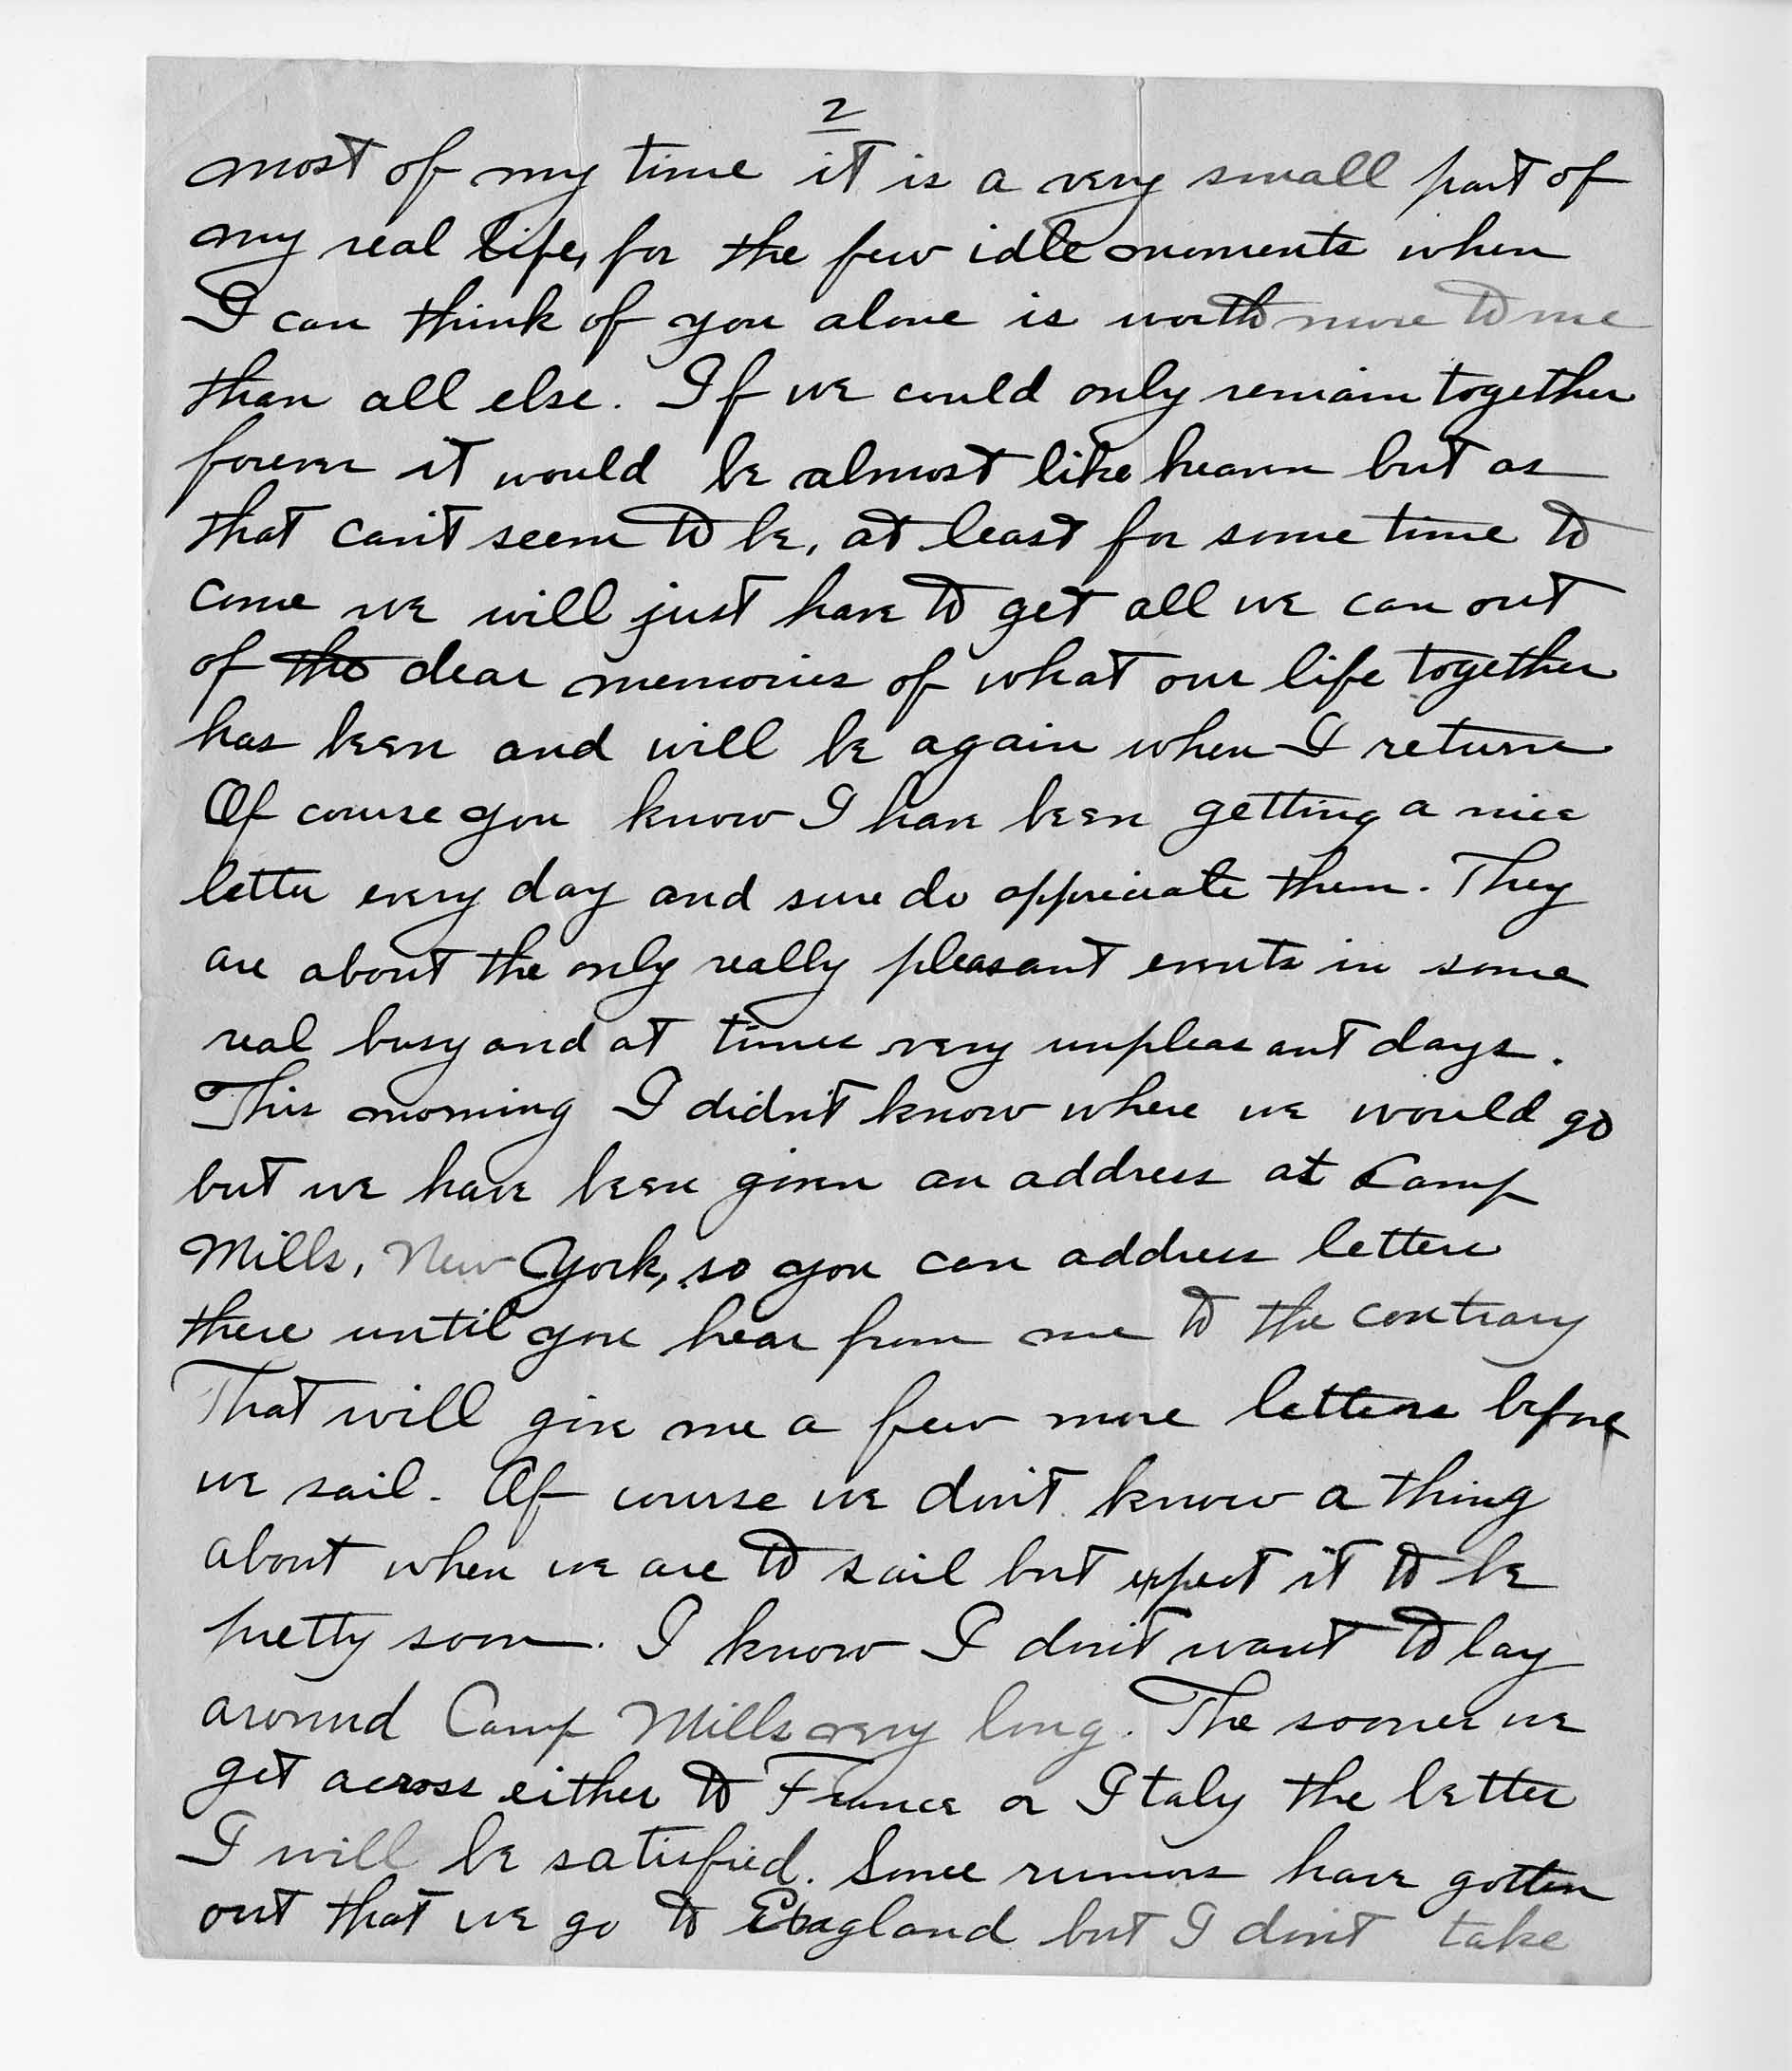 2
most of my time it is a very small part of
my real life, for the few idle moments when
I can think of you alone is worth more to me
than all else. If we could only remain together
forever it would be almost like heaven but as
that can't seem to be, at least for some time to
come we will just have to get all we can out
of the dear memories of what our life together
has been and will be again when I return
Of course you know I have been getting a nice
letter every day and sure do appreciate them. They
are about the only really pleasant events in some
real busy and at times very unpleasant days.
This morning I didn't know where we would go
but we have been given an address at Camp
Mills, New York, so you can address letters
there until you hear from me to the contrary
That will give me a few more letters before
we sail. Of course we don't know a thing
about when we are to sail but expect it to be
pretty soon. I know I don't want to lay
around Camp Mills very long. The sooner we
get across either to France or Italy the better
I will be satisfied. Some rumors have gotten
out that we go to England but I don't take